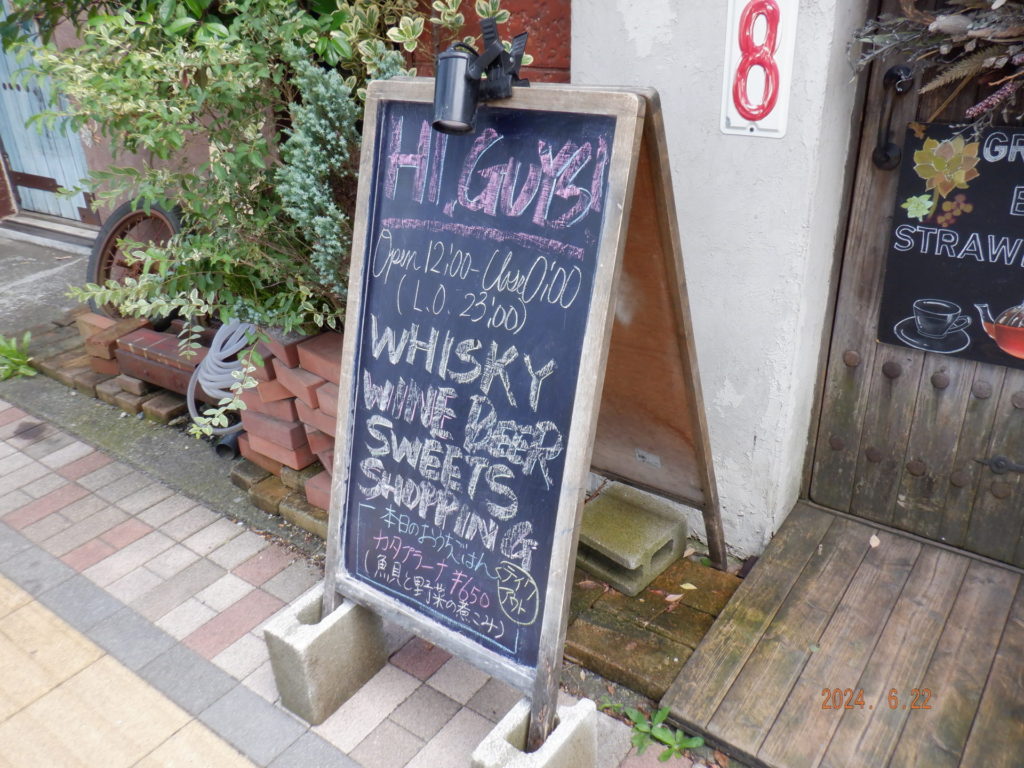 HI, GUYS!
Open 12:00- Close 0:00
(L.O. 23:00)
WHISKY
WINE BEER
SWEETS
SHOPPING
本日のおうちごはん
カタプラーナ ¥650
(魚貝と野菜の煮こみ)
テイク
アウト
8
GR
STRAW
2024. 6.22